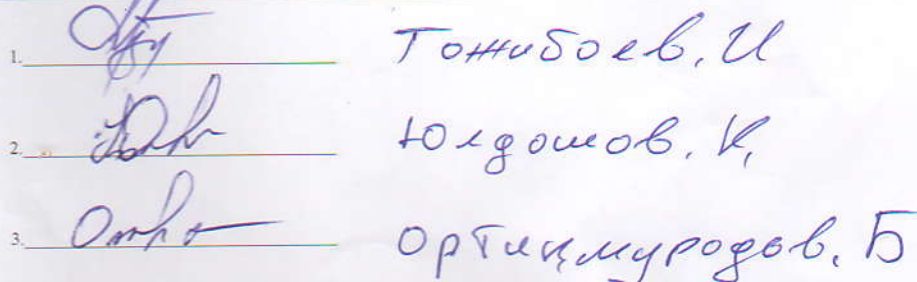 1. Тожибоев. И
2. Юлдошов. К.
3. Ортикмуродов. Б